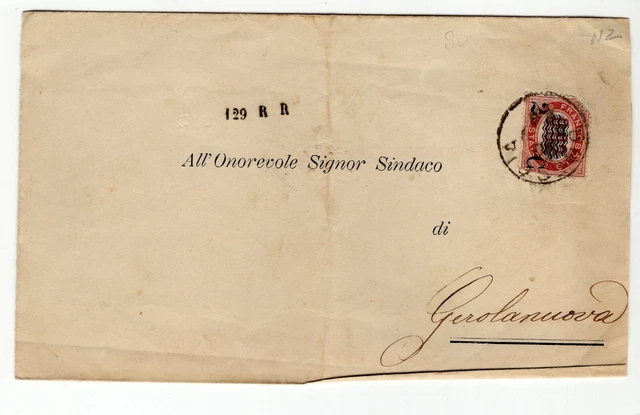 N2
129 R R
All'Onorevole Signor Sindaco
di
Gerolanuova